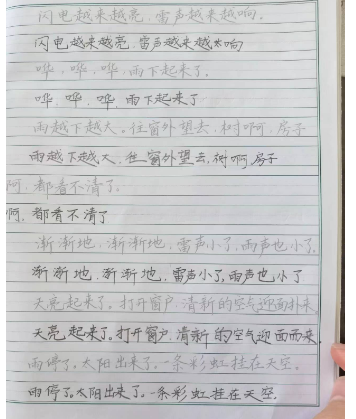 闪电越来越亮，雷声越来越响。
闪电越来越亮，雷声越来越响
哗，哗，哗，雨下起来了。
哗，哗，哗，雨下起来了
雨越下越大。往窗外望去，树啊，房子
雨越下越大，往窗外望去，树啊，房子
啊，都看不清了。
啊，都看不清了
渐渐地，渐渐地，雷声小了，雨声也小了。
渐渐地，渐渐地，雷声小了，雨声也小了
天亮起来了。打开窗户，清新的空气迎面扑来。
天亮起来了。打开窗户，清新的空气迎面而来。
雨停了。太阳出来了。一条彩虹挂在天空。
雨停了。太阳出来了。一条彩虹挂在天空。